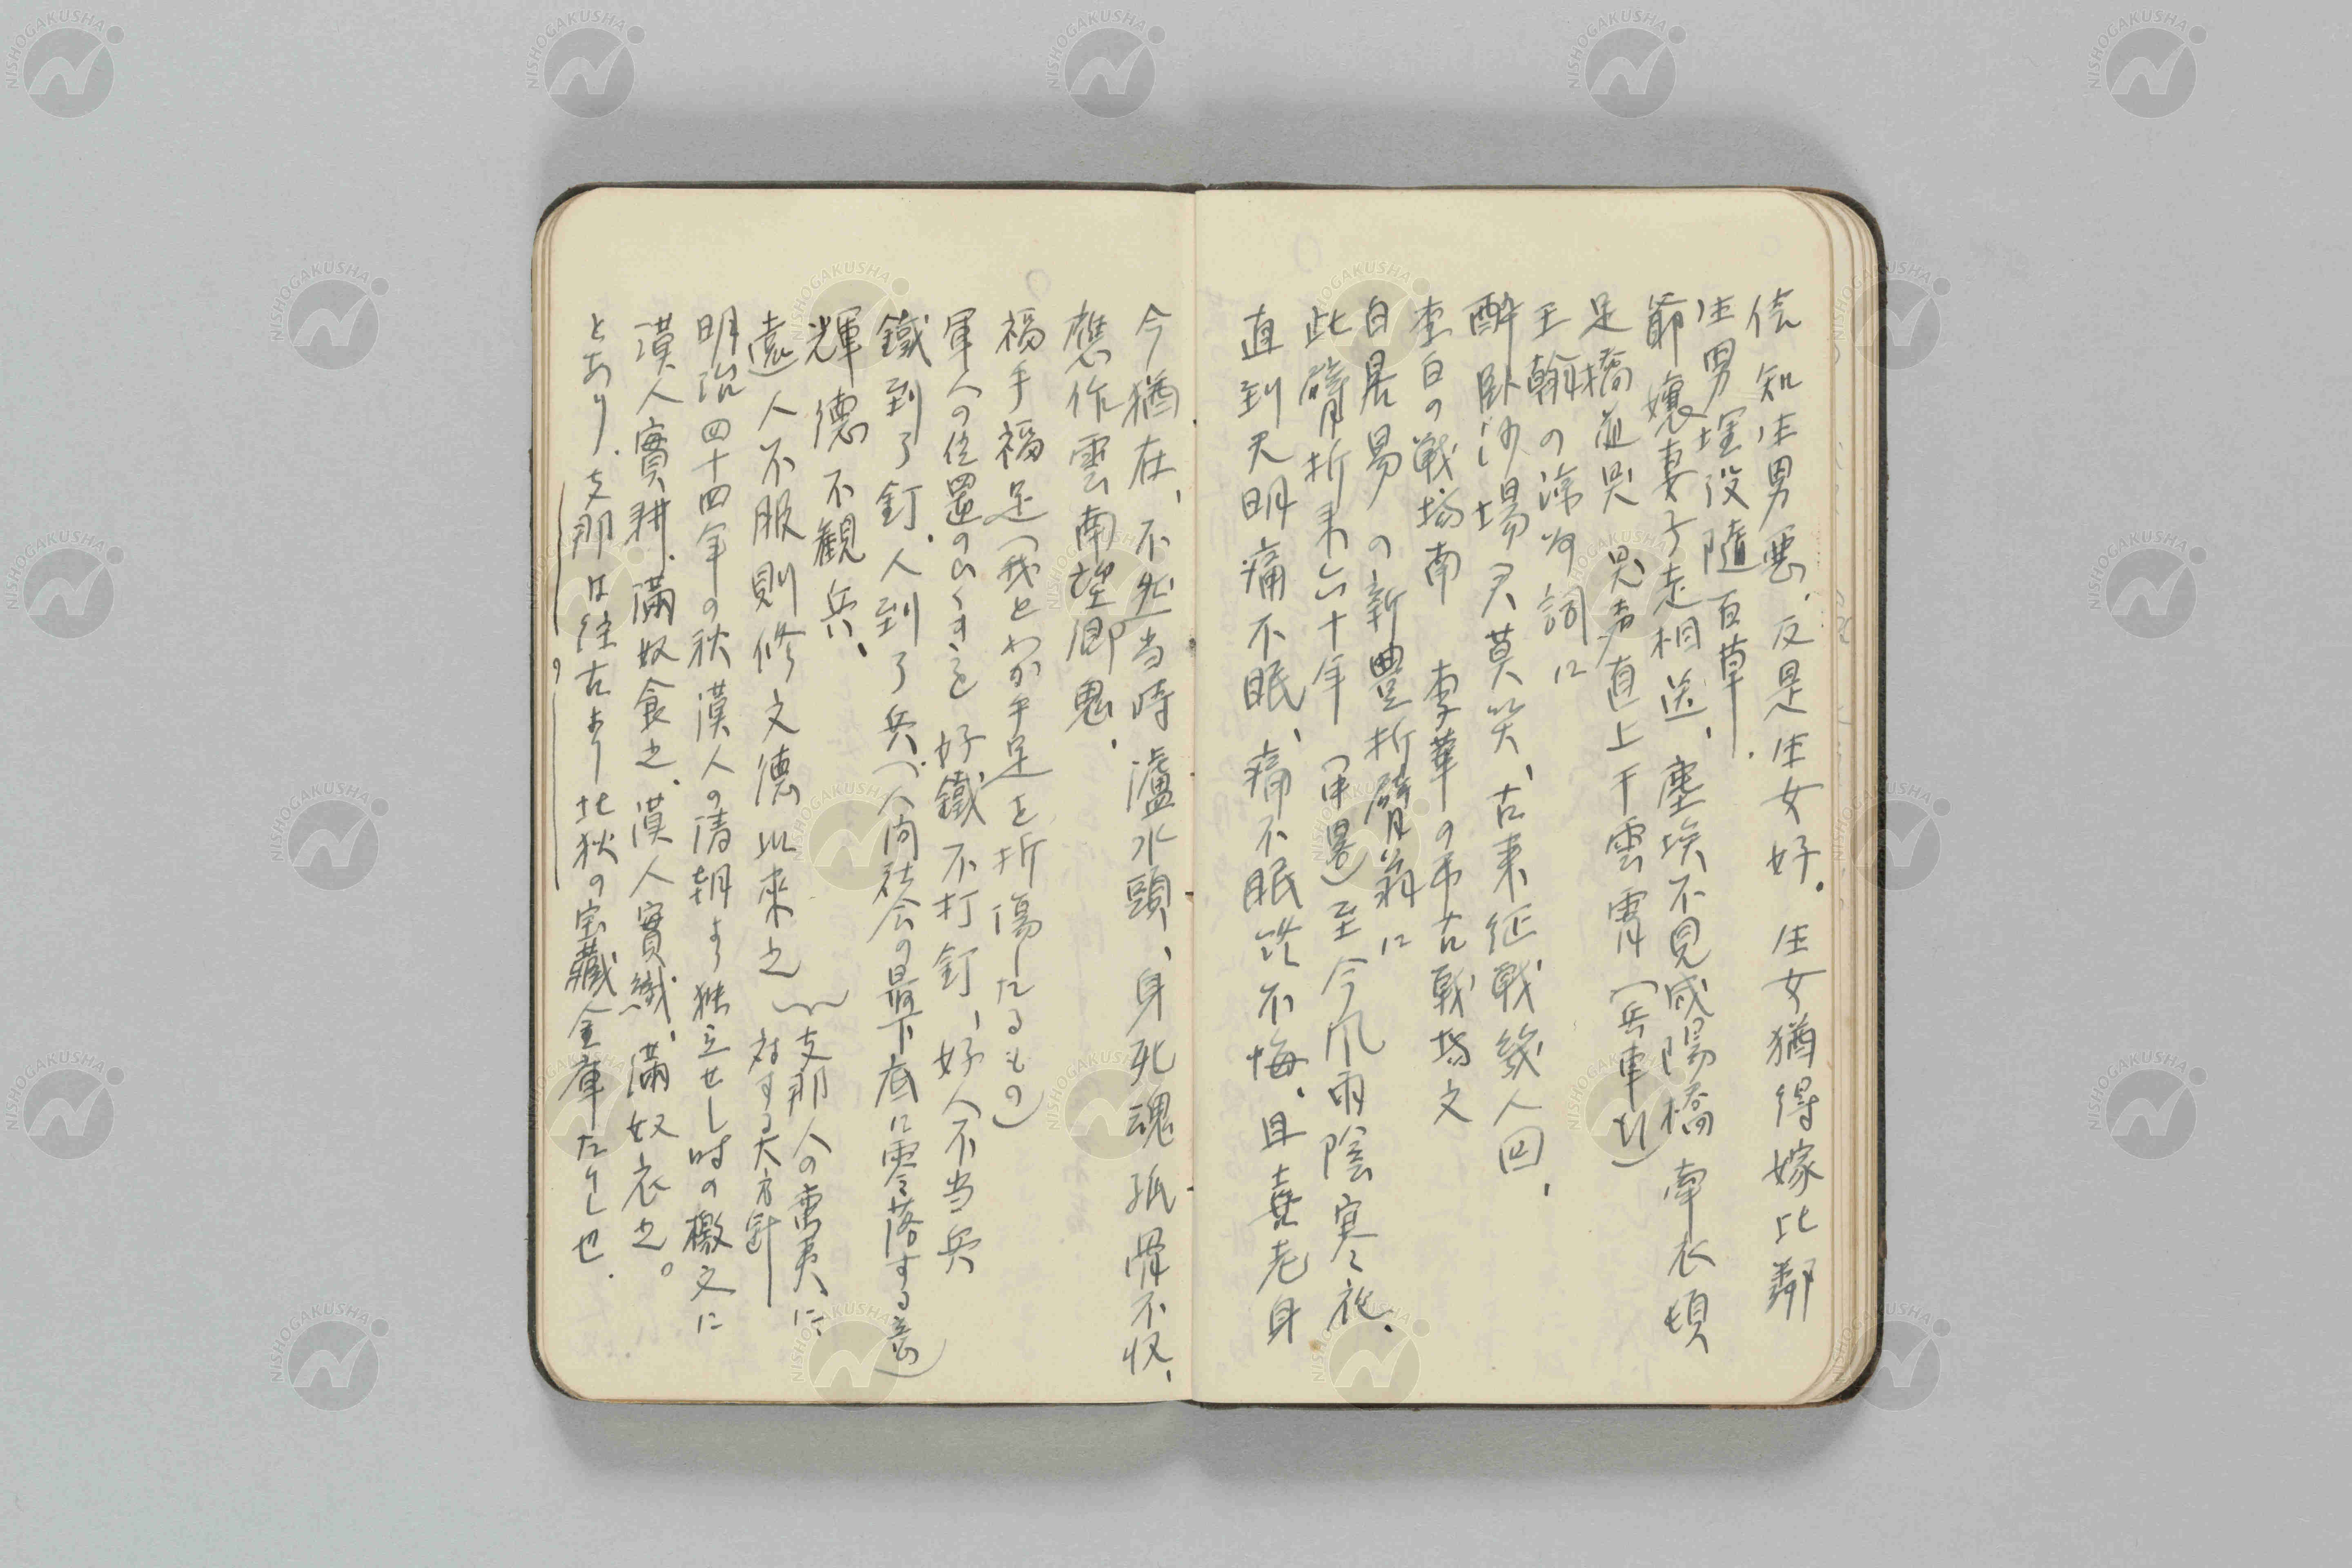 信知生男悪、反是生女好。生女猶得嫁比鄰
生男埋没隨百草.
爺孃妻子走相送、塵埃不見咸陽橋 牽衣頓
足攔道哭 哭声直上干雲霄(兵車行)
王翰の涼州詞に
酔臥沙場君莫笑、古来征戦幾人回、
李白の戦場南 李華の弔古戦場文
白居易の新豊折臂翁に
此臂折来六十年(中畧)至今風雨陰寒夜、
直到天明痛不眠、痛不眠終不悔、且喜老身
今猶在、不然当時瀘水頭、身死魂孤骨不収、
應作雲南望郷鬼、
福手福足(我とわが手足を折傷したるもの)
軍人の位置のひくきを 好鐵不打釘、好人不当兵
鐵到了釘、人到了兵(人間社会の最下底に零落する意)
輝德不観兵、
遠人不服則修文德以來之
支那人の蛮夷に
対する大方針
明治四十四年の秋漢人の清朝より独立せし時の檄文に
漢人實耕、満奴食之、漢人實織、満奴衣之。
とあり、支那は往古より北狄の宝藏金庫たりし也.
NISHOGAKUSHA